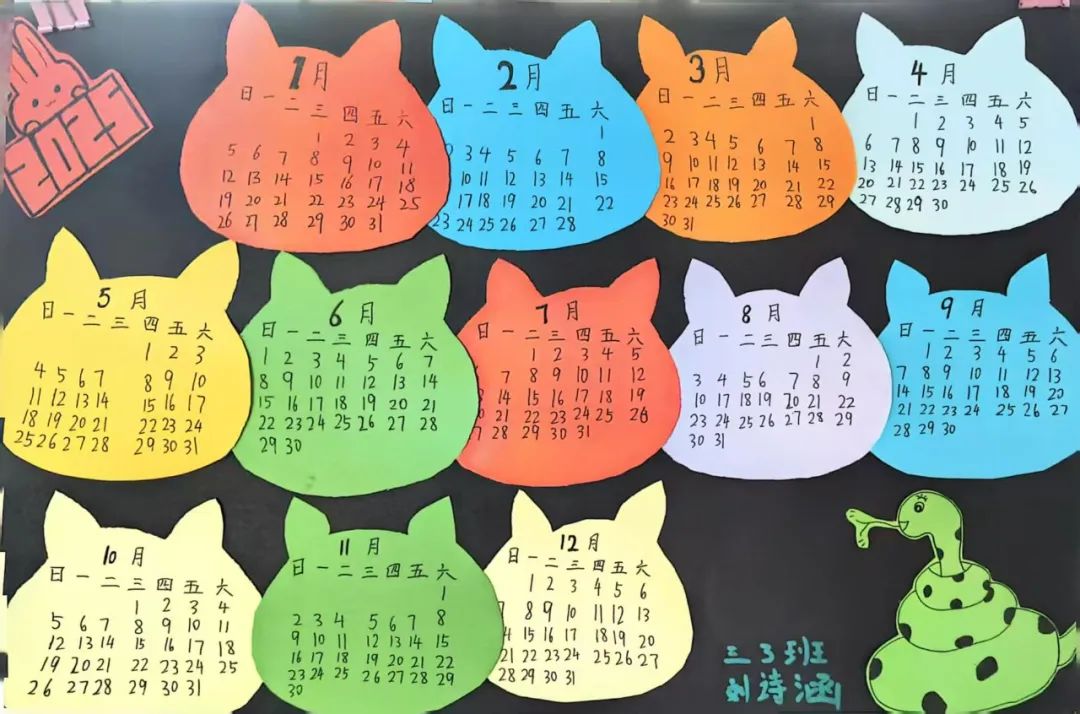 2025
1月
日 一 二 三 四 五 六
1 2 3 4
5 6 7 8 9 10 11
12 13 14 15 16 17 18
19 20 21 22 23 24 25
26 27 28 29 30 31
2月
日 一 二 三 四 五 六
1
3 4 5 6 7 8
10 11 12 13 14 15
17 18 19 20 21 22
23 24 25 26 27 28
3月
日 一 二 三 四 五 六
1
2 3 4 5 6 7 8
9 10 11 12 13 14 15
16 17 18 19 20 21 22
23 24 25 26 27 28 29
30 31
4月
日 一 二 三 四 五 六
1 2 3 4 5
6 7 8 9 10 11 12
13 14 15 16 17 18 19
20 21 22 23 24 25 26
27 28 29 30
5月
日 一 二 三 四 五 六
1 2 3
4 5 6 7 8 9 10
11 12 13 14 15 16 17
18 19 20 21 22 23 24
25 26 27 28 29 30 31
6月
日 一 二 三 四 五 六
1 2 3 4 5 6 7
8 9 10 11 12 13 14
15 16 17 18 19 20 21
22 23 24 25 26 27 28
29 30
7月
日 一 二 三 四 五 六
1 2 3 4 5
7 8 9 10 11 12
14 15 16 17 18 19
21 22 23 24 25 26
28 29 30 31
8月
日 一 二 三 四 五 六
1 2
3 4 5 6 7 8 9
10 17 18 19 20 21 22
22 23 24 25 26 27 28 29
30 31
9月
日 一 二 三 四 五 六
1 2 3 4 5 6
7 8 9 10 11 12 13
14 15 16 17 18 19 20
21 22 23 24 25 26 27
28 29 30
10月
日 一 二 三 四 五 六
1 2 3 4
5 6 7 8 9 10 11
12 13 14 15 16 17 18
19 20 21 22 23 24 25
26 27 28 29 30 31
11月
日 一 二 三 四 五 六
1
2 3 4 5 6 7 8
9 10 11 12 13 14 15
16 17 18 19 20 21 22
23 24 25 26 27 28 29
30
12月
日 一 二 三 四 五 六
1 2 3 4 5 6
7 8 9 10 11 12 13
15 16 17 18 19 20
21 22 23 24 25 26 27
28 29 30 31
三3班
刘诗涵